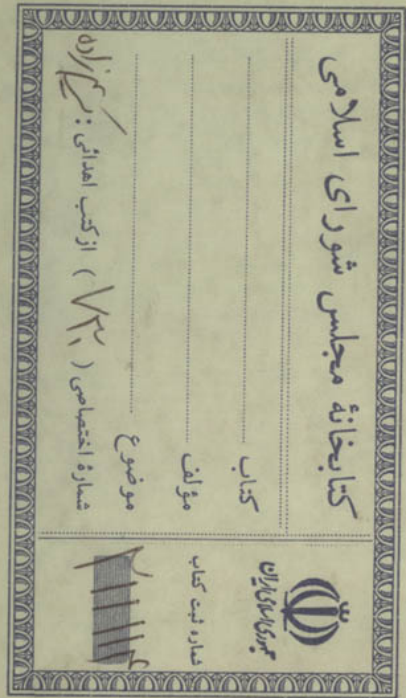 کتابخانهٔ مجلس شورای اسلامی
کتاب
مؤلف
موضوع
شمارهٔ اختصاصی ( ۷۳۰ ) از کتب اهدائی :
جمهوری اسلامی ایران
شماره ثبت کتاب